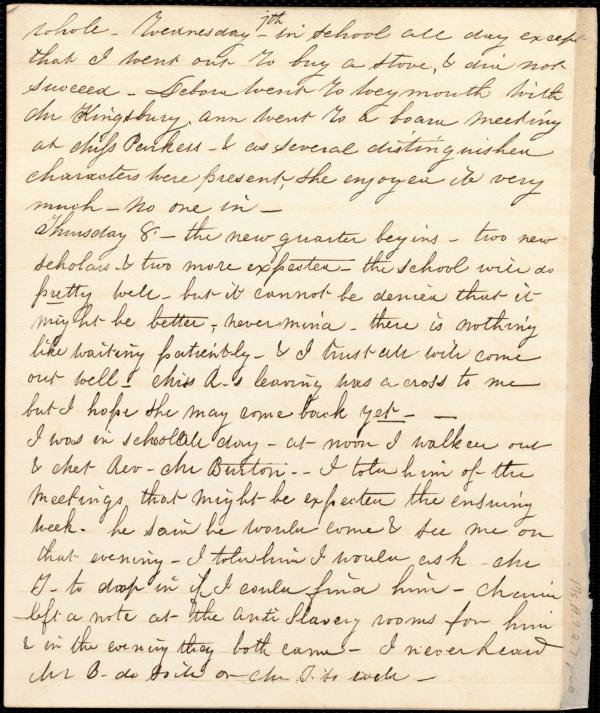 whole - Wednesday 7th - in school all day except
that I went out to buy a stove, & did not
succeed - Debora went to Weymouth with
Mr Kingsbury. Ann went to a board meeting
at Miss Parkers - & as several distinguished
characters were present, she enjoyed it very
much - No one in -
Thursday 8 - the new quarter begins - two new
scholars & two more expected - the school will do
pretty well - but it cannot be denied that it
might be better - never mind - there is nothing
like waiting patiently - & I trust all will come
out well - Miss A-s leaving was a cross to me
but I hope she may come back yet - -
I was in school all day - at noon I walked out
& met Rev - Mr Burton - - I told him of the
meetings that might be expected the ensuing
week - he said he would come & see me on
that evening - I told him I would ask Mr
T- to drop in if I could find him -
left a note at the Anti Slavery rooms for him
& in the evening they both came - I never heard
Mr B- do so ill or Mr T. so well -
Ms.A.9.2.7 p60